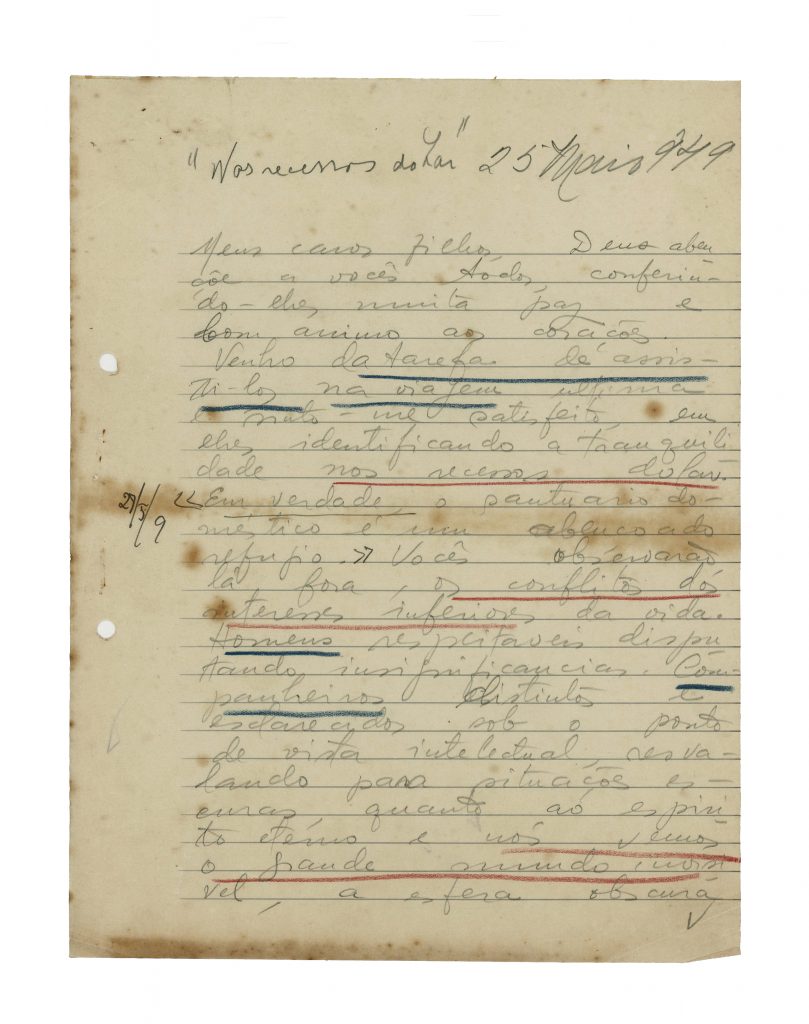 "Nos recessos do Lar" 25 Maio 949
Meus caros filhos, Deus aben
çõe a vocês tôdos, conferin-
do-lhes muita paz e
bom animo aos corações.
Venho da tarefa de assis-
ti-los na viagem ultima
e sinto-me satisfeito, em
lhes identificando a tranquili
dade nos recessos do lar.
29/5/9 << Em verdade, o santuario do-
méstico é um abençoado
refugio. >> Vocês observarão
lá fora, os conflitos dos
interesses inferiores da vida.
Homens respeitaveis dispu
tando insignificancias. Com-
panheiros distintos e
esclarecidos sob o ponto
de vista intelectual, resva-
lando para situações es-
curas quanto ao espiri
to eterno e nós vemos
o grande mundo invisi
vel, a esfera obscura